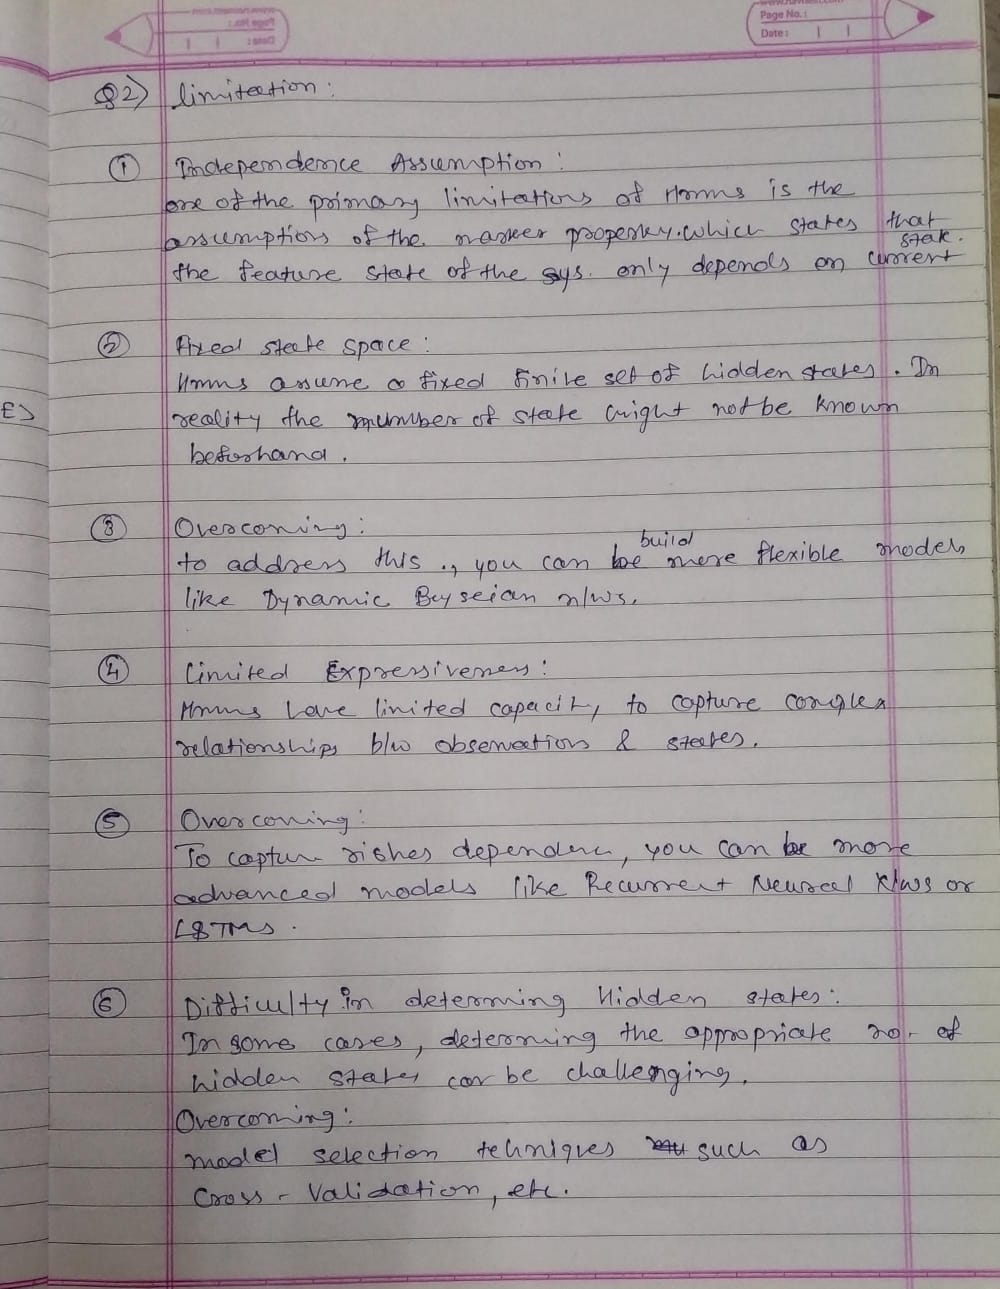 Page No.:
Date:
Q2) limitation:
① Independence Assumption:
one of the primary limitations of Hmms is the
assumption of the marker property. which states that
the feature state of the sys. only depends on current state.
② Fixed state space:
Hmms assume a fixed finite set of hidden states. In
reality the number of state might not be known
beforhand.
③ Overcoming:
to address this ., you can be build more flexible models
like Dynamic Beyseian n/ws.
④ Limited Expressiveness:
Hmms have limited capacity, to capture complex
relationships b/w observation & states.
⑤ Overcoming:
To capture rishes dependenc, you can be more
advanced models like Recurrent Neural N/ws or
LSTMs.
⑥ Difficulty in determing Hidden states:
In some cases, determing the appropriate no. of
hidden states can be challenging.
Overcoming:
model selection tehniques such as
Cross-Validation, etc.